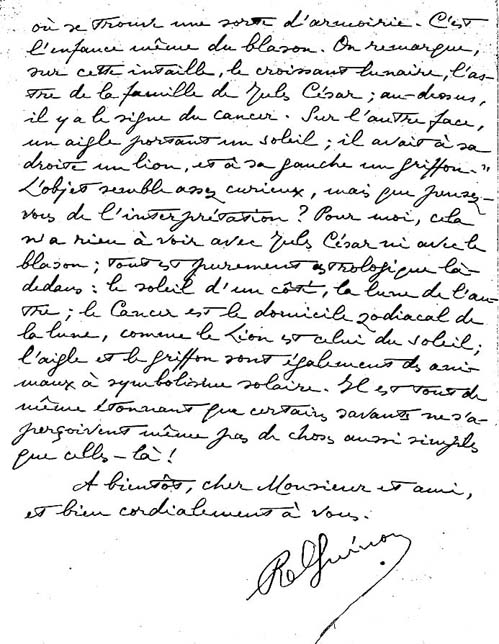 où se trouve une sorte d'armoirie. C'est
l'enfance même du blason. On remarque,
sur cette intaille, le croissant lunaire, l'as-
tre de la famille de Jules César ; au-dessus,
il y a le signe du cancer. Sur l'autre face,
un aigle portant un soleil ; il avait à sa
droite un lion, et à sa gauche un griffon."
L'objet semble assez curieux, mais que pensez-
vous de l'interprétation ? Pour moi, cela
n'a rien à voir avec Jules César ni avec le
blason ; tout est purement astrologique là-
dedans : le soleil d'un côté, la lune de l'au-
tre ; le Cancer est le domicile zodiacal de
la lune, comme le Lion est celui du soleil ;
l'aigle et le griffon sont également des ani-
maux à symbolisme solaire. Il est tout de
même étonnant que certains savants ne s'a-
perçoivent même pas de choses aussi simples
que celles-là !
A bientôt, cher Monsieur et ami,
et bien cordialement à vous.
René Guénon